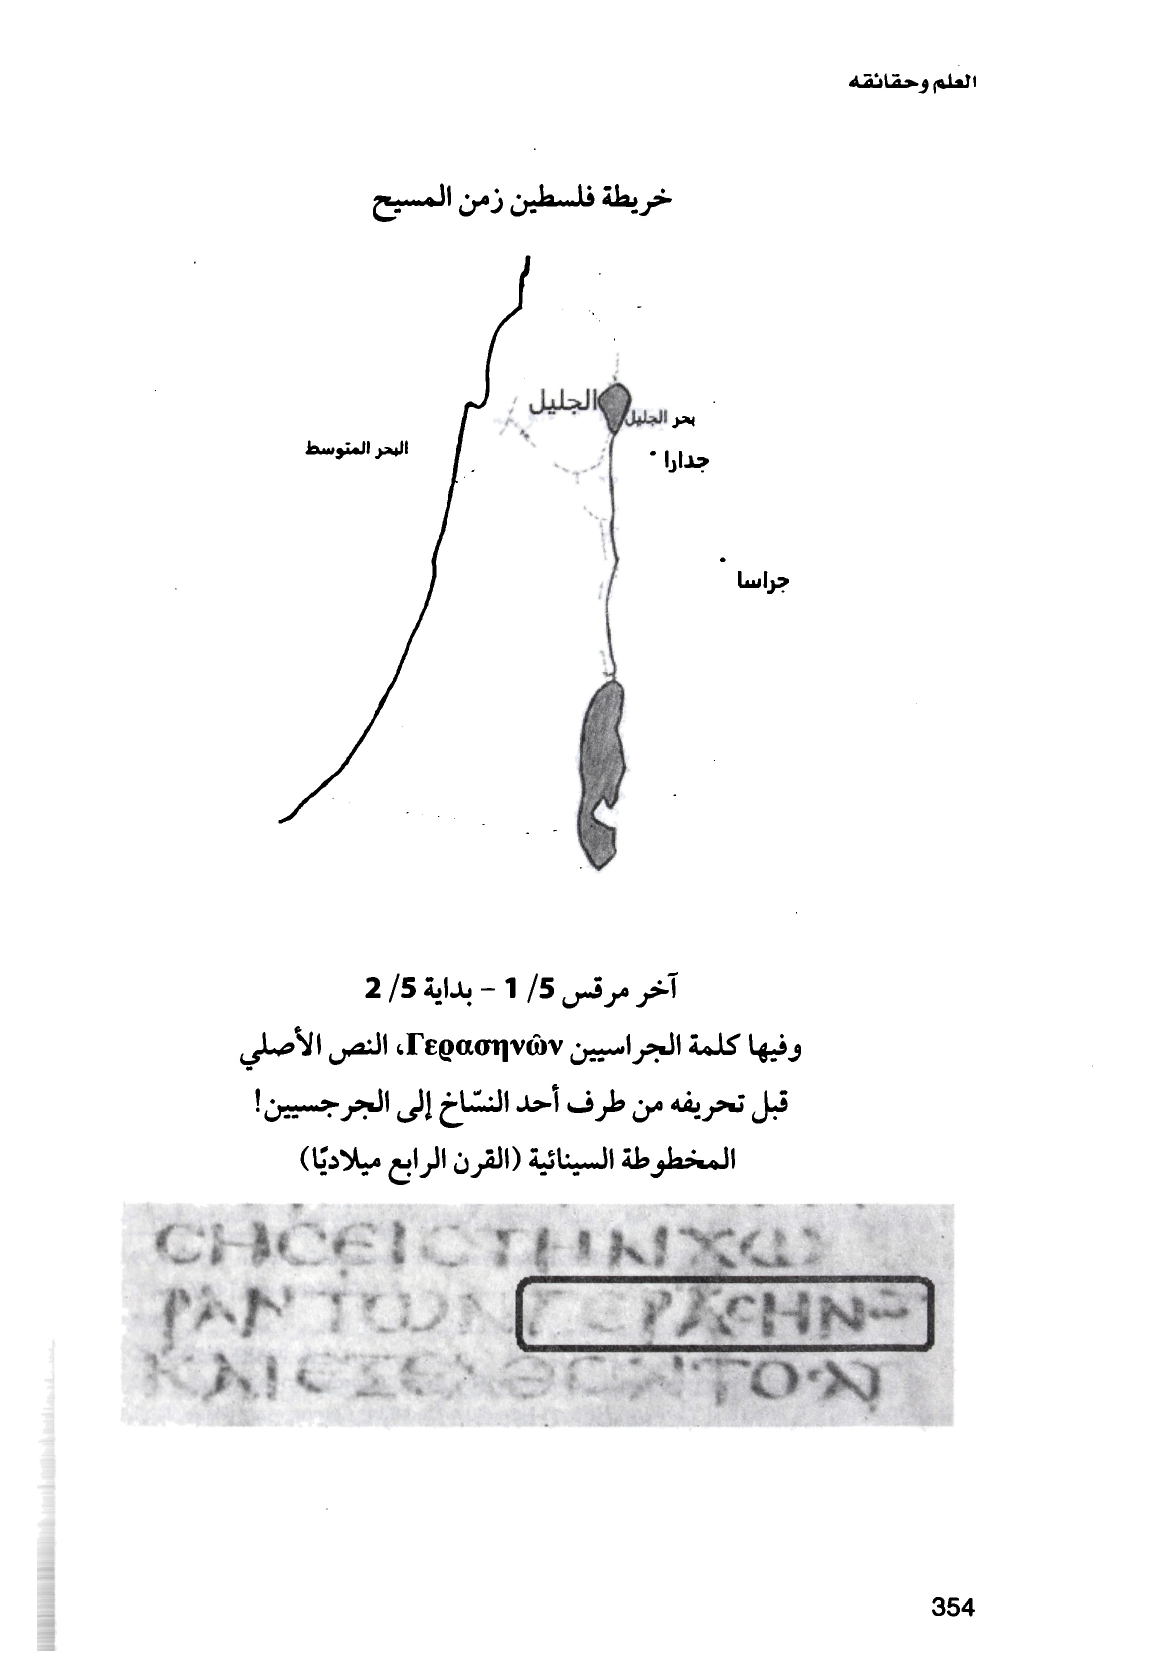 العلم وحقائقه
خريطة فلسطين زمن المسيح
الجليل
بحر الجليل
البحر المتوسط
جدارا
جراسا
آخر مرقس 5/ 1 – بداية 5/ 2
وفيها كلمة الجراسيين Γερασηνῶν، النص الأصلي
قبل تحريفه من طرف أحد النسّاخ إلى الجرجسيين!
المخطوطة السينائية (القرن الرابع ميلاديًا)
ϹΗϹΕΙϹΤΗΝΧΩ
ΡΑΝΤΩΝΓΕΡΑϹΗΝ
ΚΑΙΕΞΕΛΘΟΝΤΟϹ
354